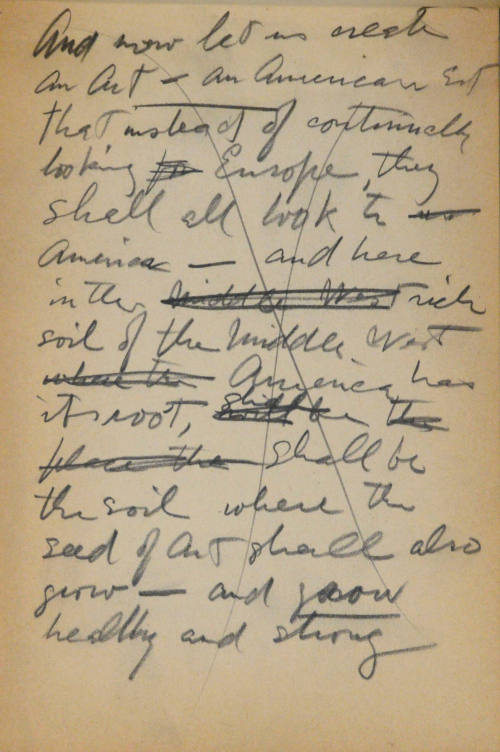 And now let us create
an Art — an American Art
that instead of continually
looking to Europe, they
shall all look to us
America — and here
in the Middle West rich
soil of the Middle West
where the America has
its root, shall be the
place the shall be
the soil where the
seed of Art shall also
grow — and grow
healthy and strong